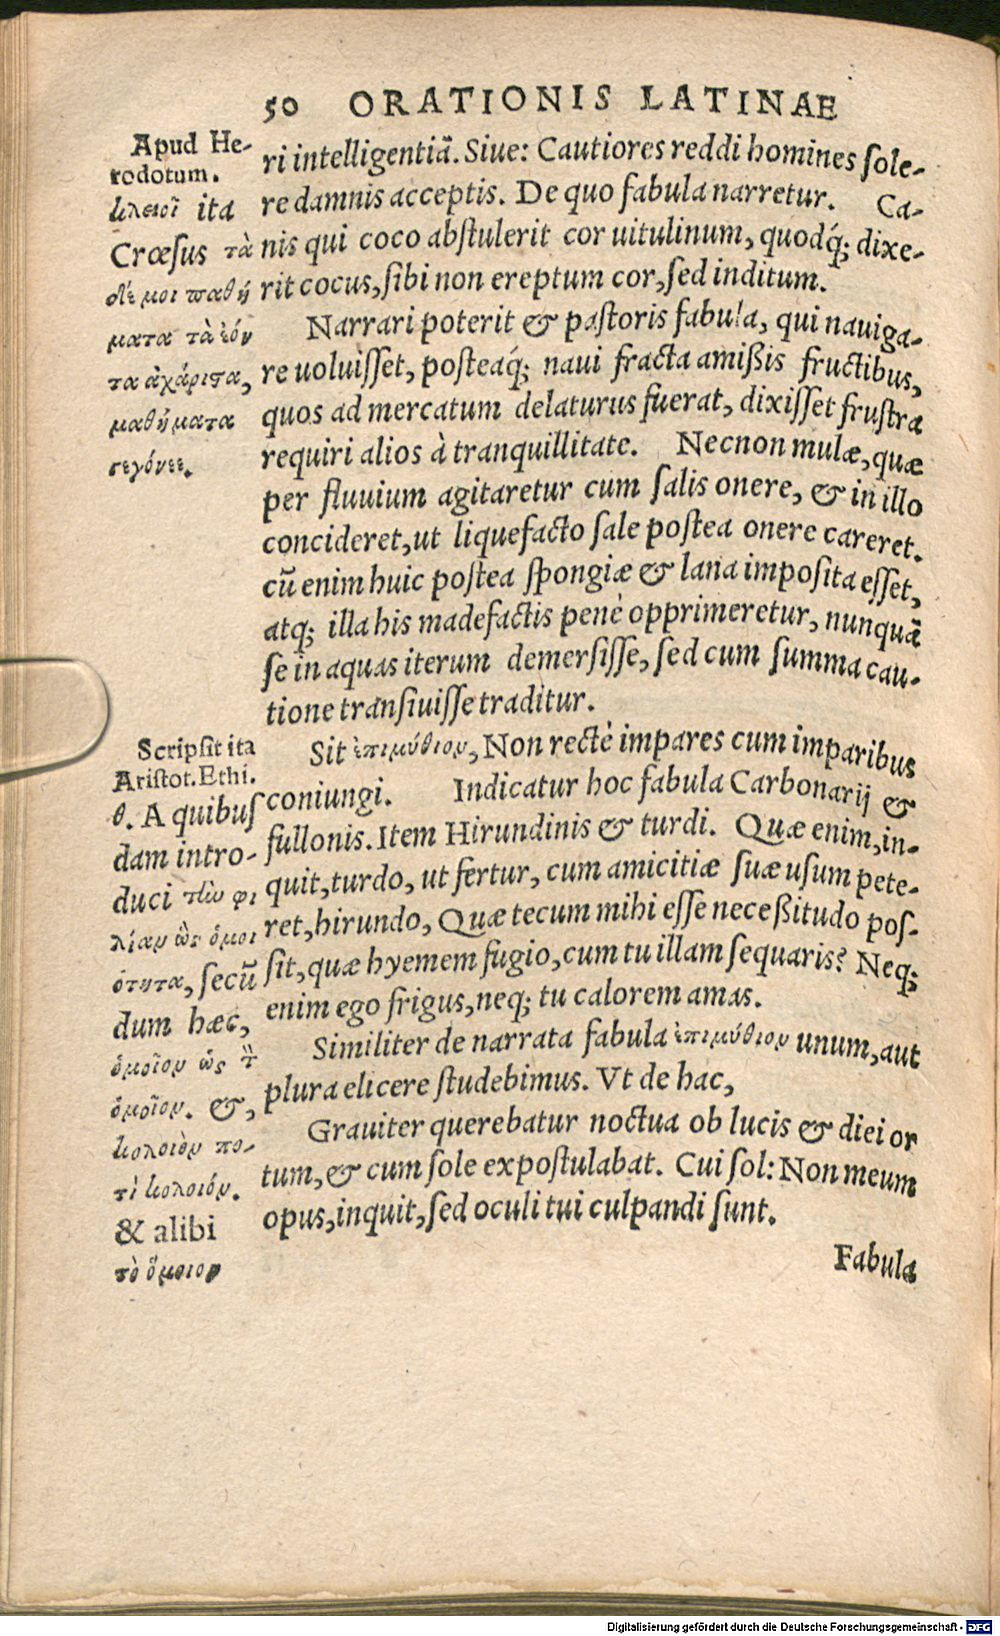 50 ORATIONIS LATINAE
Apud He-
rodotum.
κλειοῖ ita
Crœsus τὰ
δέ μοι παθή
ματα τὰ ἐόν
τα ἀχάριτα,
μαθήματα
γεγόνεε.
ri intelligentiã. Siue: Cautiores reddi homines ſole-
re damnis acceptis. De quo fabula narretur. Ca-
nis qui coco abſtulerit cor uitulinum, quodq́; dixe-
rit cocus, ſibi non ereptum cor, ſed inditum.
Narrari poterit & paſtoris fabula, qui nauiga-
re uoluiſſet, poſteaq́; naui fracta amißis fructibus,
quos ad mercatum delaturus fuerat, dixiſſet fruſtra
requiri alios à tranquillitate. Necnon mulæ, quæ
per fluuium agitaretur cum ſalis onere, & in illo
concideret, ut liquefacto ſale poſtea onere careret.
cũ enim huic poſtea ſpongiæ & lana impoſita eſſet,
atq; illa his madefactis penè opprimeretur, nunquã
ſe in aquas iterum demerſiſſe, ſed cum ſumma cau-
tione tranſiuiſſe traditur.
Scripſit ita
Ariſtot. Ethi.
θ. A quibuſ
dam intro-
duci τὴν φι
λίαν ὡς ὁμοι
ότητα, ſecũ
dum hæc,
ὁμοῖον ὡς τ̀
ὁμοῖον. &,
κολοιὸν πο-
τὶ κολοιόν.
& alibi
τὸ ὅμοιον
Sit ἐπιμύθιον, Non rectè impares cum imparibus
coniungi. Indicatur hoc fabula Carbonarij &
fullonis. Item Hirundinis & turdi. Quæ enim, in-
quit, turdo, ut fertur, cum amicitiæ ſuæ uſum pete-
ret, hirundo, Quæ tecum mihi eſſe neceßitudo poſ-
ſit, quæ hyemem fugio, cum tu illam ſequaris? Neq;
enim ego frigus, neq; tu calorem amas.
Similiter de narrata fabula ἐπιμύθιον unum, aut
plura elicere ſtudebimus. Vt de hac,
Grauiter querebatur noctua ob lucis & diei or
tum, & cum ſole expoſtulabat. Cui ſol: Non meum
opus, inquit, ſed oculi tui culpandi ſunt.
Fabula
Digitalisierung gefördert durch die Deutsche Forschungsgemeinschaft - DFG